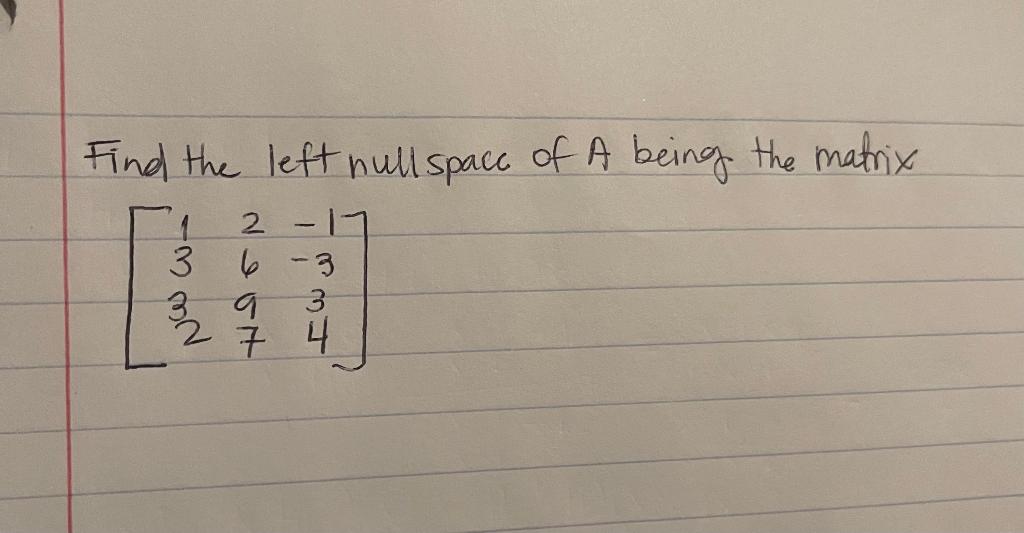 Find the left nullspace of A being the matrix
1 2 -1
3 6 -3
3 9 3
2 7 4